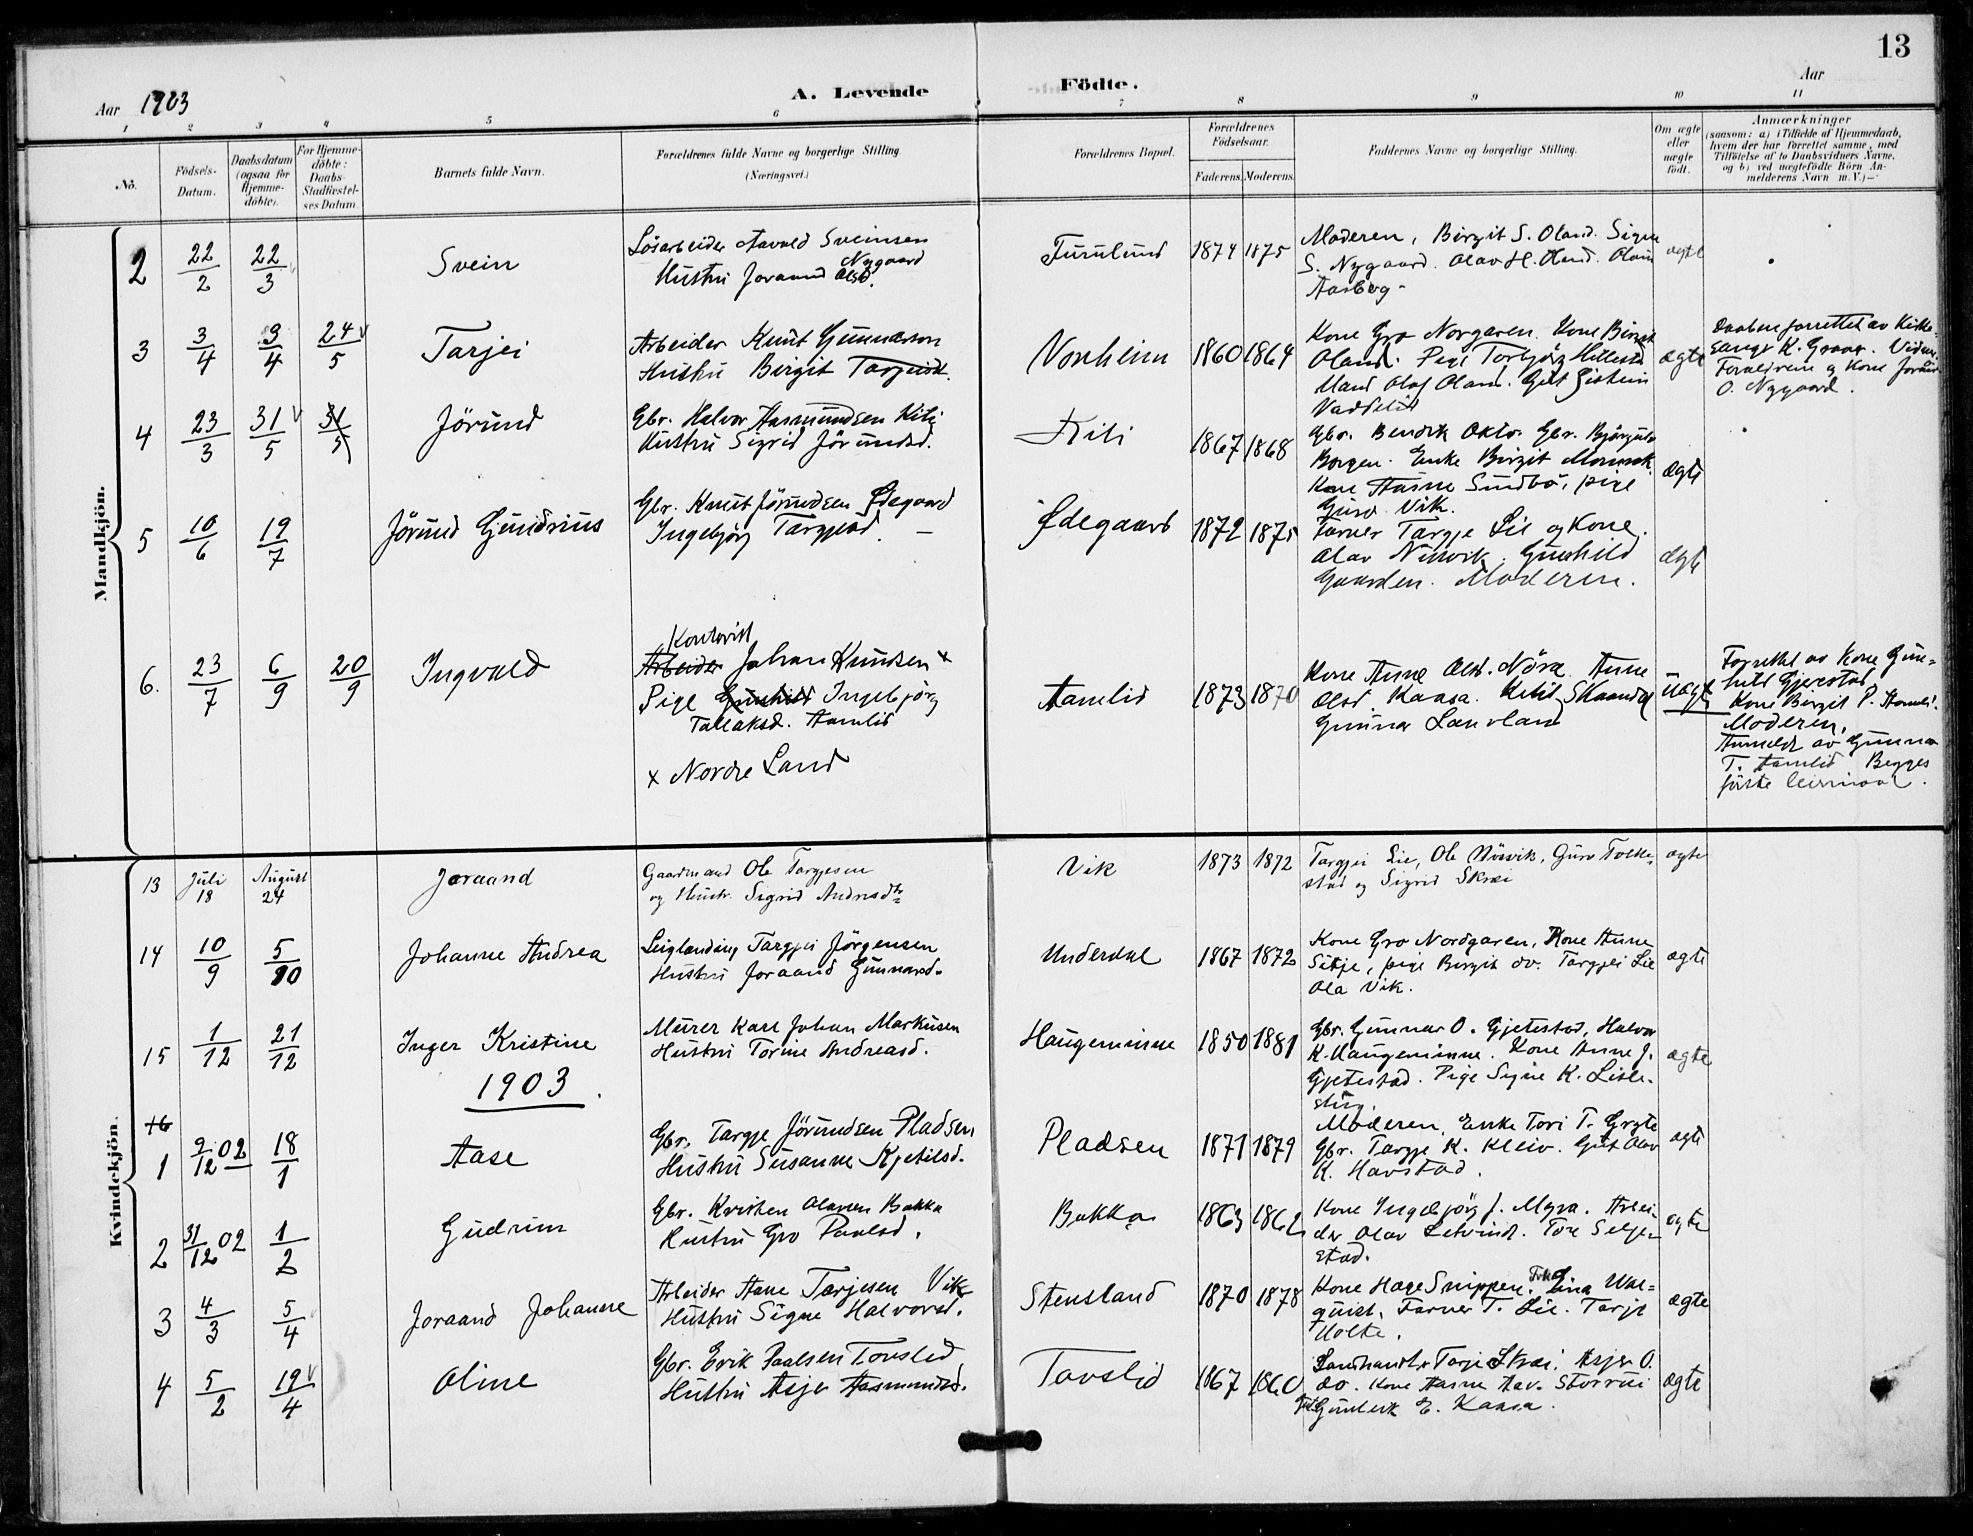 13
A. Levende Födte.
Aar 1903
Aar
1 2 3 4 5 6 7 8 9 10 11
No.
Födsels-Datum.
Daabsdatum (ogsaa for Hjemme-döbte).
For Hjemme-döbte: Daabs-Stadfæstel-ses Datum.
Barnets fulde Navn.
Forældrenes fulde Navne og borgerlige Stilling (Næringsvei.)
Forældrenes Bopæl.
Forældrenes Födselsaar.
Faderens. Moderens.
Faddernes Navne og borgerlige Stilling.
Om ægte eller uægte födt.
Anmærkninger
(saasom: a) i Tilfælde af Hjemmedaab,
hvem der har forrettet samme, med
Tilföielse af to Daabsvidners Navne,
og b) ved uægtefödte Börn An-
melderens Navn m. V.)
Mandkjön.
2 22/2 22/3 Svein
Lösarbeider Aavald Sveinsen
Nygaard
Hustru Joraand Olsd.
Furulund 1874 1875
Moderen, Birgit S. Oland. Signe
S. Nygaard. Olav H. Oland.
Aasberg
ægte
3 3/4 3/4 24/5 Tarjei
Arbeider Knut Gunnarson
Hustru Birgit Tarjeisd.
Vonheim 1860 1864
Kone Gro Norgaren. Kone Birgit
Oland. Pige Torbjörg
Mand Olaf Oland. Gut Eistein
ægte
Daaben forrettet av Kirke-
sanger K. Graver. Vidner
Forældrene og Kone Joraand
O. Nygaard.
4 23/3 31/5 31/5 Jörund
Gbr. Halvor Aasmundsen Kiti
Hustru Sigrid Jörundsd.
Kiti 1867 1868
Gbr. Bendik Gbr. Björgulv
Borgen. Enke Birgit
Kone Aasne Sundbö, pige
Guro Vik.
ægte
5 10/6 19/7 Jörund Gundrius
Gbr. Knut Jörundsen Ødegaard
Ingebjörg Targjesd. –
Ødegaard 1872 1875
Farver Targje Lie og Kone.
Olav Gunhild
Gaarden. Moderen.
ægte
6. 23/7 6/9 20/9 Ingvald
Kontorist
Arbeider Johan Knudsen x
Pige Gunhild Ingebjörg
Tallaksd. Aamlid
x Nordre Land
Aamlid 1873 1870
Kone Anne Olsd. Nöra. Anne
Olsd. Kaasa. Ketil Skaandal
Gunnar Lauvland
uægte
Forrettet av Kone Gun-
hild Gjerstad
Kone Birgit P. Aamlid.
Moderen.
Anmeldt av Gunnar
T. Aamlid Begges
förste leiermaal.
Kvindekjön.
13 Juli 18 August 24 Joraand
Gaardmand Ole Targjesen
og Hustr. Sigrid Andreasdtr
Vik 1873 1872
Targjei Lie, Ole Ulsvik, Guro Tveite-
stad og Sigrid Skrei
ægte
14 10/9 5/10 Johanne Andrea
Leiglænding Targjei Jörgensen
Hustru Joraand Gunnarsd.
Underdal 1867 1872
Kone Gro Nordgaren, Kone Anne
Sitje, pige Birgit do. Targjei Lie
Ola Vik.
ægte
15 1/12 21/12 Inger Kristine
Murer Karl Johan Markusen
Hustru Torine Andreasd.
Haugeminne 1850 1881
Gbr. Gunnar O. Gjetestad, Halvor
K. Haugeminne. Kone Anne J.
Gjetestad. Pige Signe K. Lisle-
stug.
ægte
1903.
16
1 9/12 02 18/1 Aase
Gbr. Targje Jörundsen Pladsen
Hustru Susanne Kjetilsd.
Pladsen 1871 1879
Moderen, Enke Tori T. Gryte
Gbr. Targje K. Kleiv. Gut Olav
K. Havstad.
ægte
2 31/12 02 1/2 Gudrun
Gbr. Kristen Olavsen Bakka
Hustru Gro Paulsd.
Bakka 1863 1862
Kone Ingebjörg J. Myra. Arbei-
der Olav Tore Selje-
stad.
ægte
3 4/3 5/4 Joraand Johanne
Arbeider Aane Tarjesen Vik
Hustru Signe Halvorsd.
Stensland 1870 1878
Kone Hage Snippen. Frk. Lina Une-
quist. Farver T. Lie. Tarje
Holte.
ægte
4 5/2 19/4 Oline
Gbr. Erik Paalsen Tovslid
Hustru Asjer Aasmundsd.
Tovslid 1867 1860
Landhandler Tarje Skrei. Asjer O.
do. Kone Aasne Aav. Storrui
Gut Gunleik E. Kaasa.
ægte